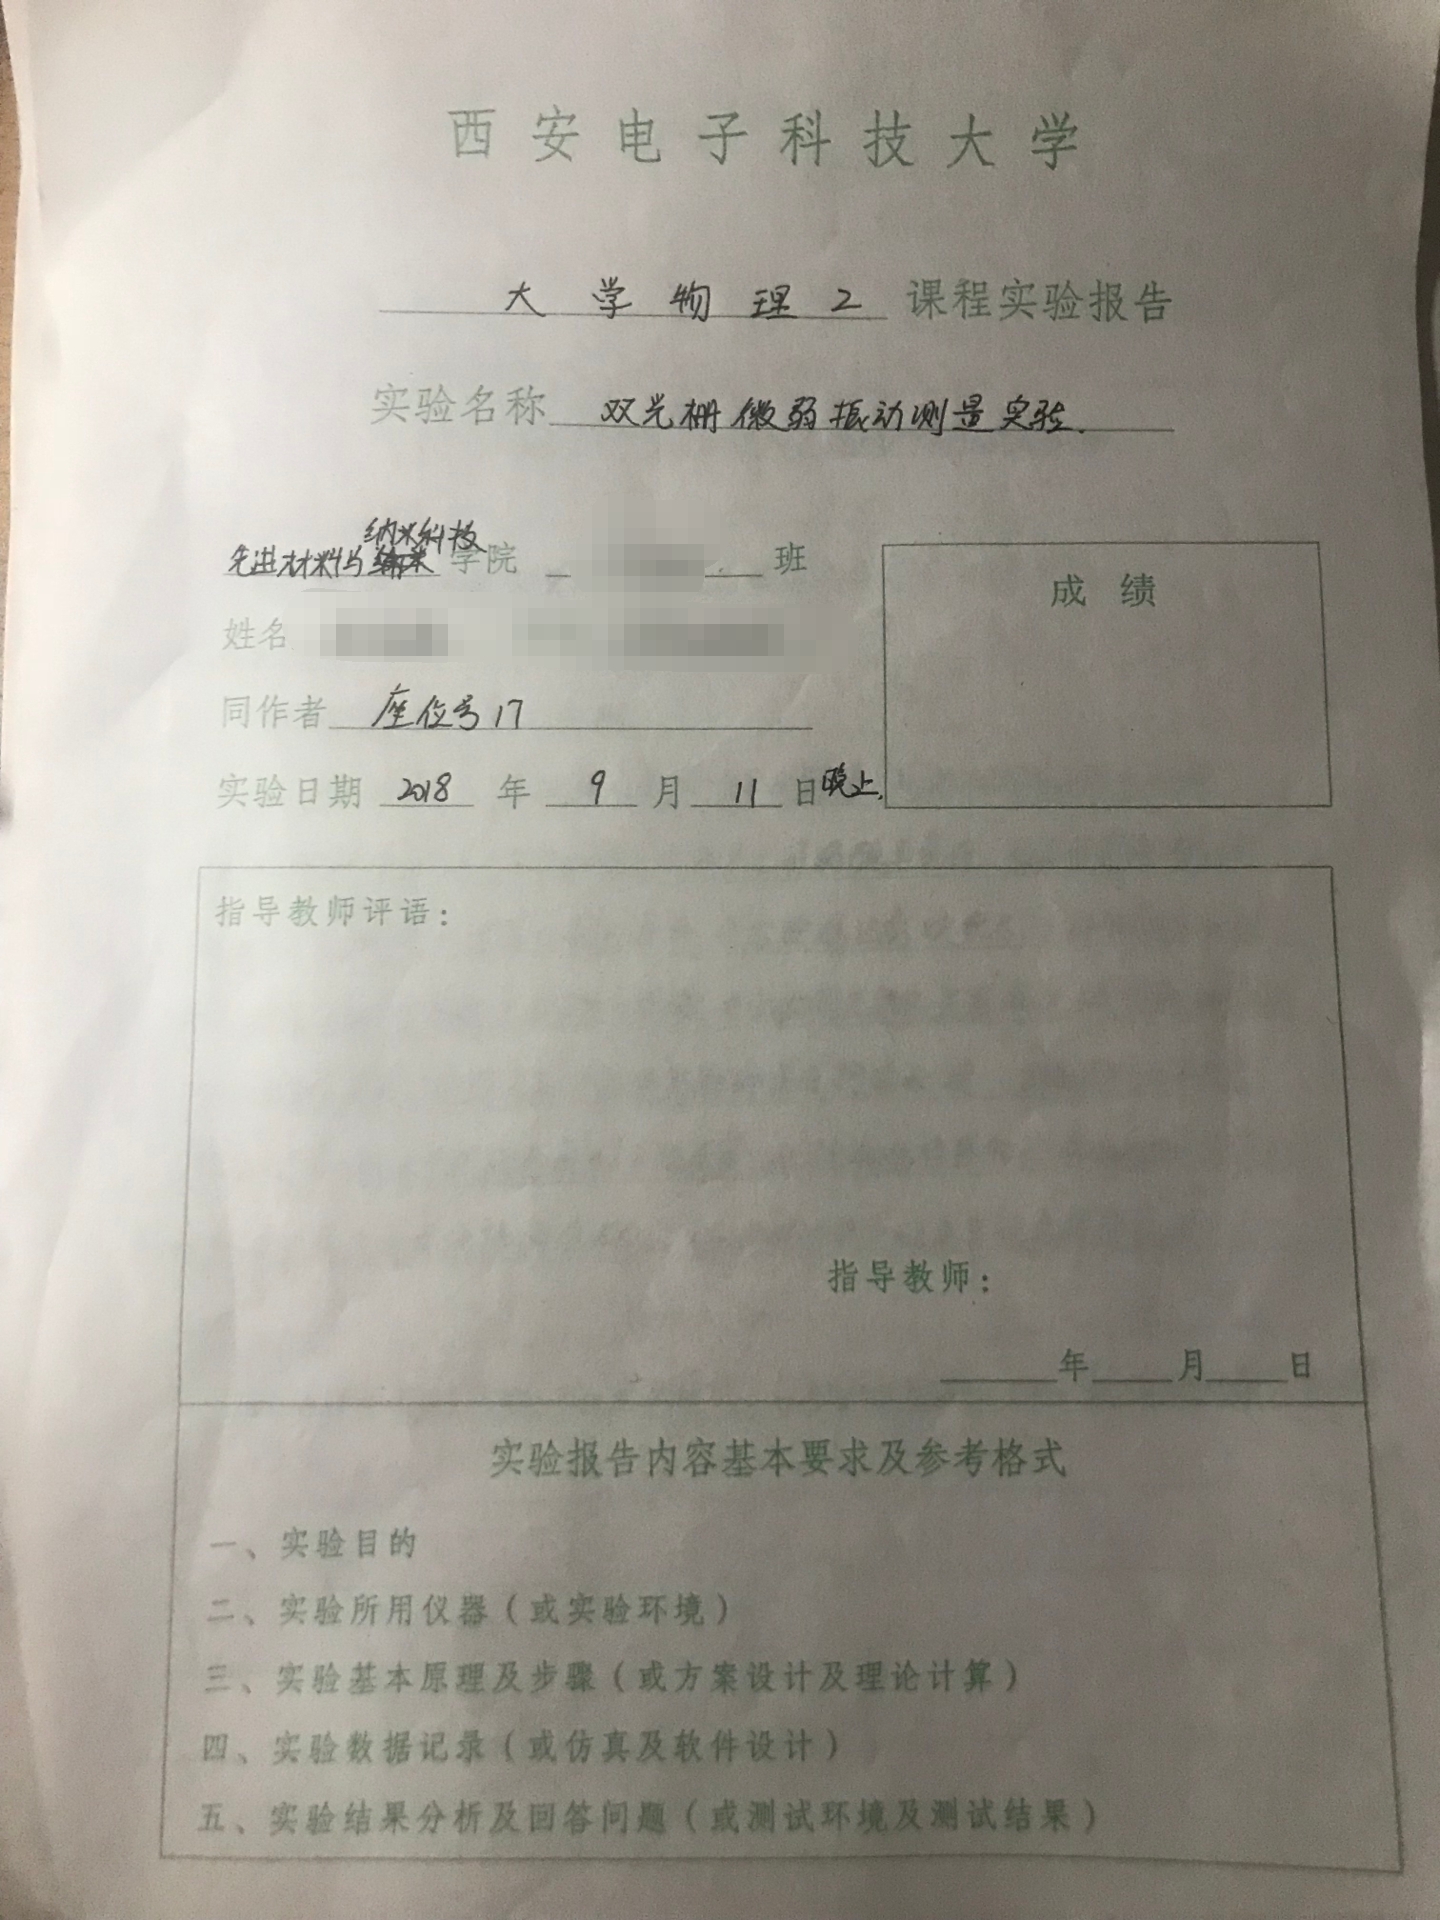 西安电子科技大学
大学物理2 课程实验报告
实验名称 双光栅微弱振动测量实验.
纳米科技
先进材料与 学院 班
姓名
同作者 座位号17
实验日期 2018 年 9 月 11 日晚上.
成绩
指导教师评语:
指导教师:
年 月 日
实验报告内容基本要求及参考格式
一、实验目的
二、实验所用仪器(或实验环境)
三、实验基本原理及步骤(或方案设计及理论计算)
四、实验数据记录(或仿真及软件设计)
五、实验结果分析及回答问题(或测试环境及测试结果)